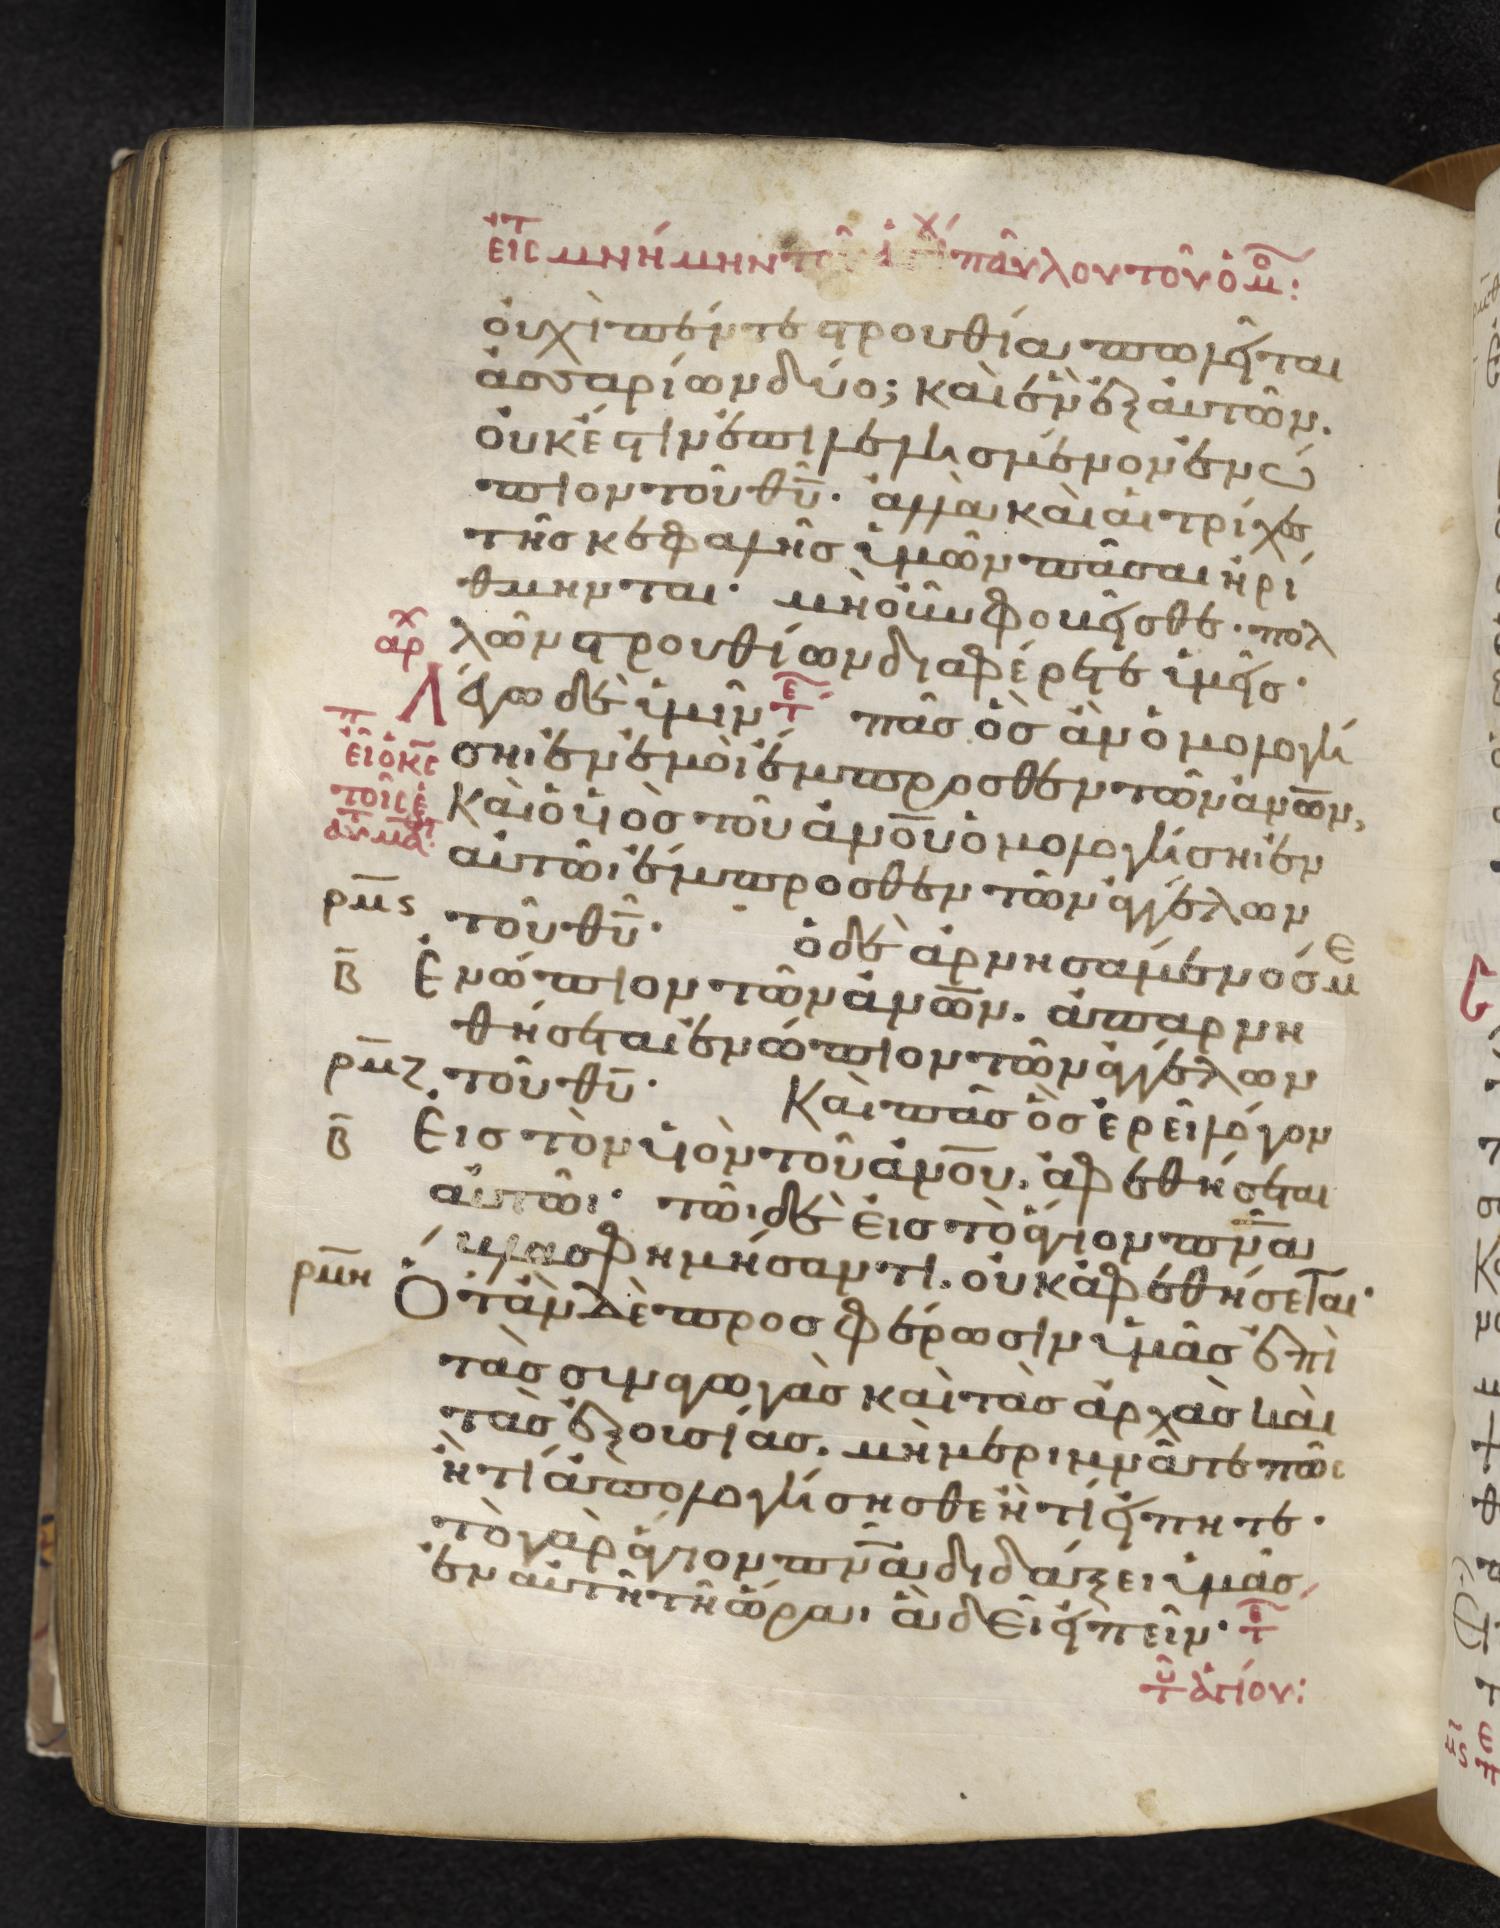 εις μνήμην τοῦ παύλου τοῦ ὁμ:
ὀυχὶ πέντε στρουθία πωλεῖται
ἀσσαρίων δύο; καὶ ἓν ἐξ αὐτῶν.
ὀυκ έστιν ἐπιλελησμένον ἐνώ
πιον τοῦ θῦ. ἀλλὰ καὶ αἱ τρίχες
τῆσ κεφαλῆσ ὑμῶν πᾶσαι ἠρί
θμηνται· μὴ οὖν φοβεῖσθε. πολ
λῶν στρουθίων διαφέρετε ὑμεῖσ·
αρχ
Λέγω δὲ ὑμῖν πᾶσ ὃσ ἂν ὁμολογή
σηι ἐν ἐμοὶ ἔμπροσθεν τῶν ἀνῶν,
εἶ ὁ κς
τοῖς ἑ
Καὶ ὁ υἱὸσ τοῦ ἀνοῦ ὁμολογήσηι ἐν
αὐτῶι ἔμπροσθεν τῶν ἀγγέλων
ρμς
τοῦ θῦ· ὁ δὲ ἀρνησάμενόσ με
β
Ἐνώπιον τῶν ἀνῶν. ἀπαρνη
θήσεται ἐνώπιον τῶν ἀγγέλων
ρμζ
τοῦ θῦ· Καὶ πᾶσ ὃσ ἐρεῖ λόγον
β
Ἐισ τὸν υἱὸν τοῦ ἀνοῦ. ἀφεθήσεται
αὐτῶι· τῶι δὲ ἐισ τὸ ἅγιον πνᾶ
βλασφημήσαντι. οὐκ ἀφεθήσεται·
ρμη
Ὅταν δὲ προσφέρωσιν ὑμᾶσ ἐπὶ
τὰσ συναγωγὰσ καὶ τὰσ ἀρχὰσ καὶ
τὰσ ἐξουσίασ. μὴ μεριμνᾶτε πῶσ
ἢ τί ἀπολογήσησθε ἢ τί εἴπητε·
τὸ γὰρ ἅγιον πνᾶ διδάξει ὑμᾶσ
ἐν αὐτῆ τῆ ὥρα, ἃ δεῖ εἰπεῖν·
τοῦ ἁγίου: